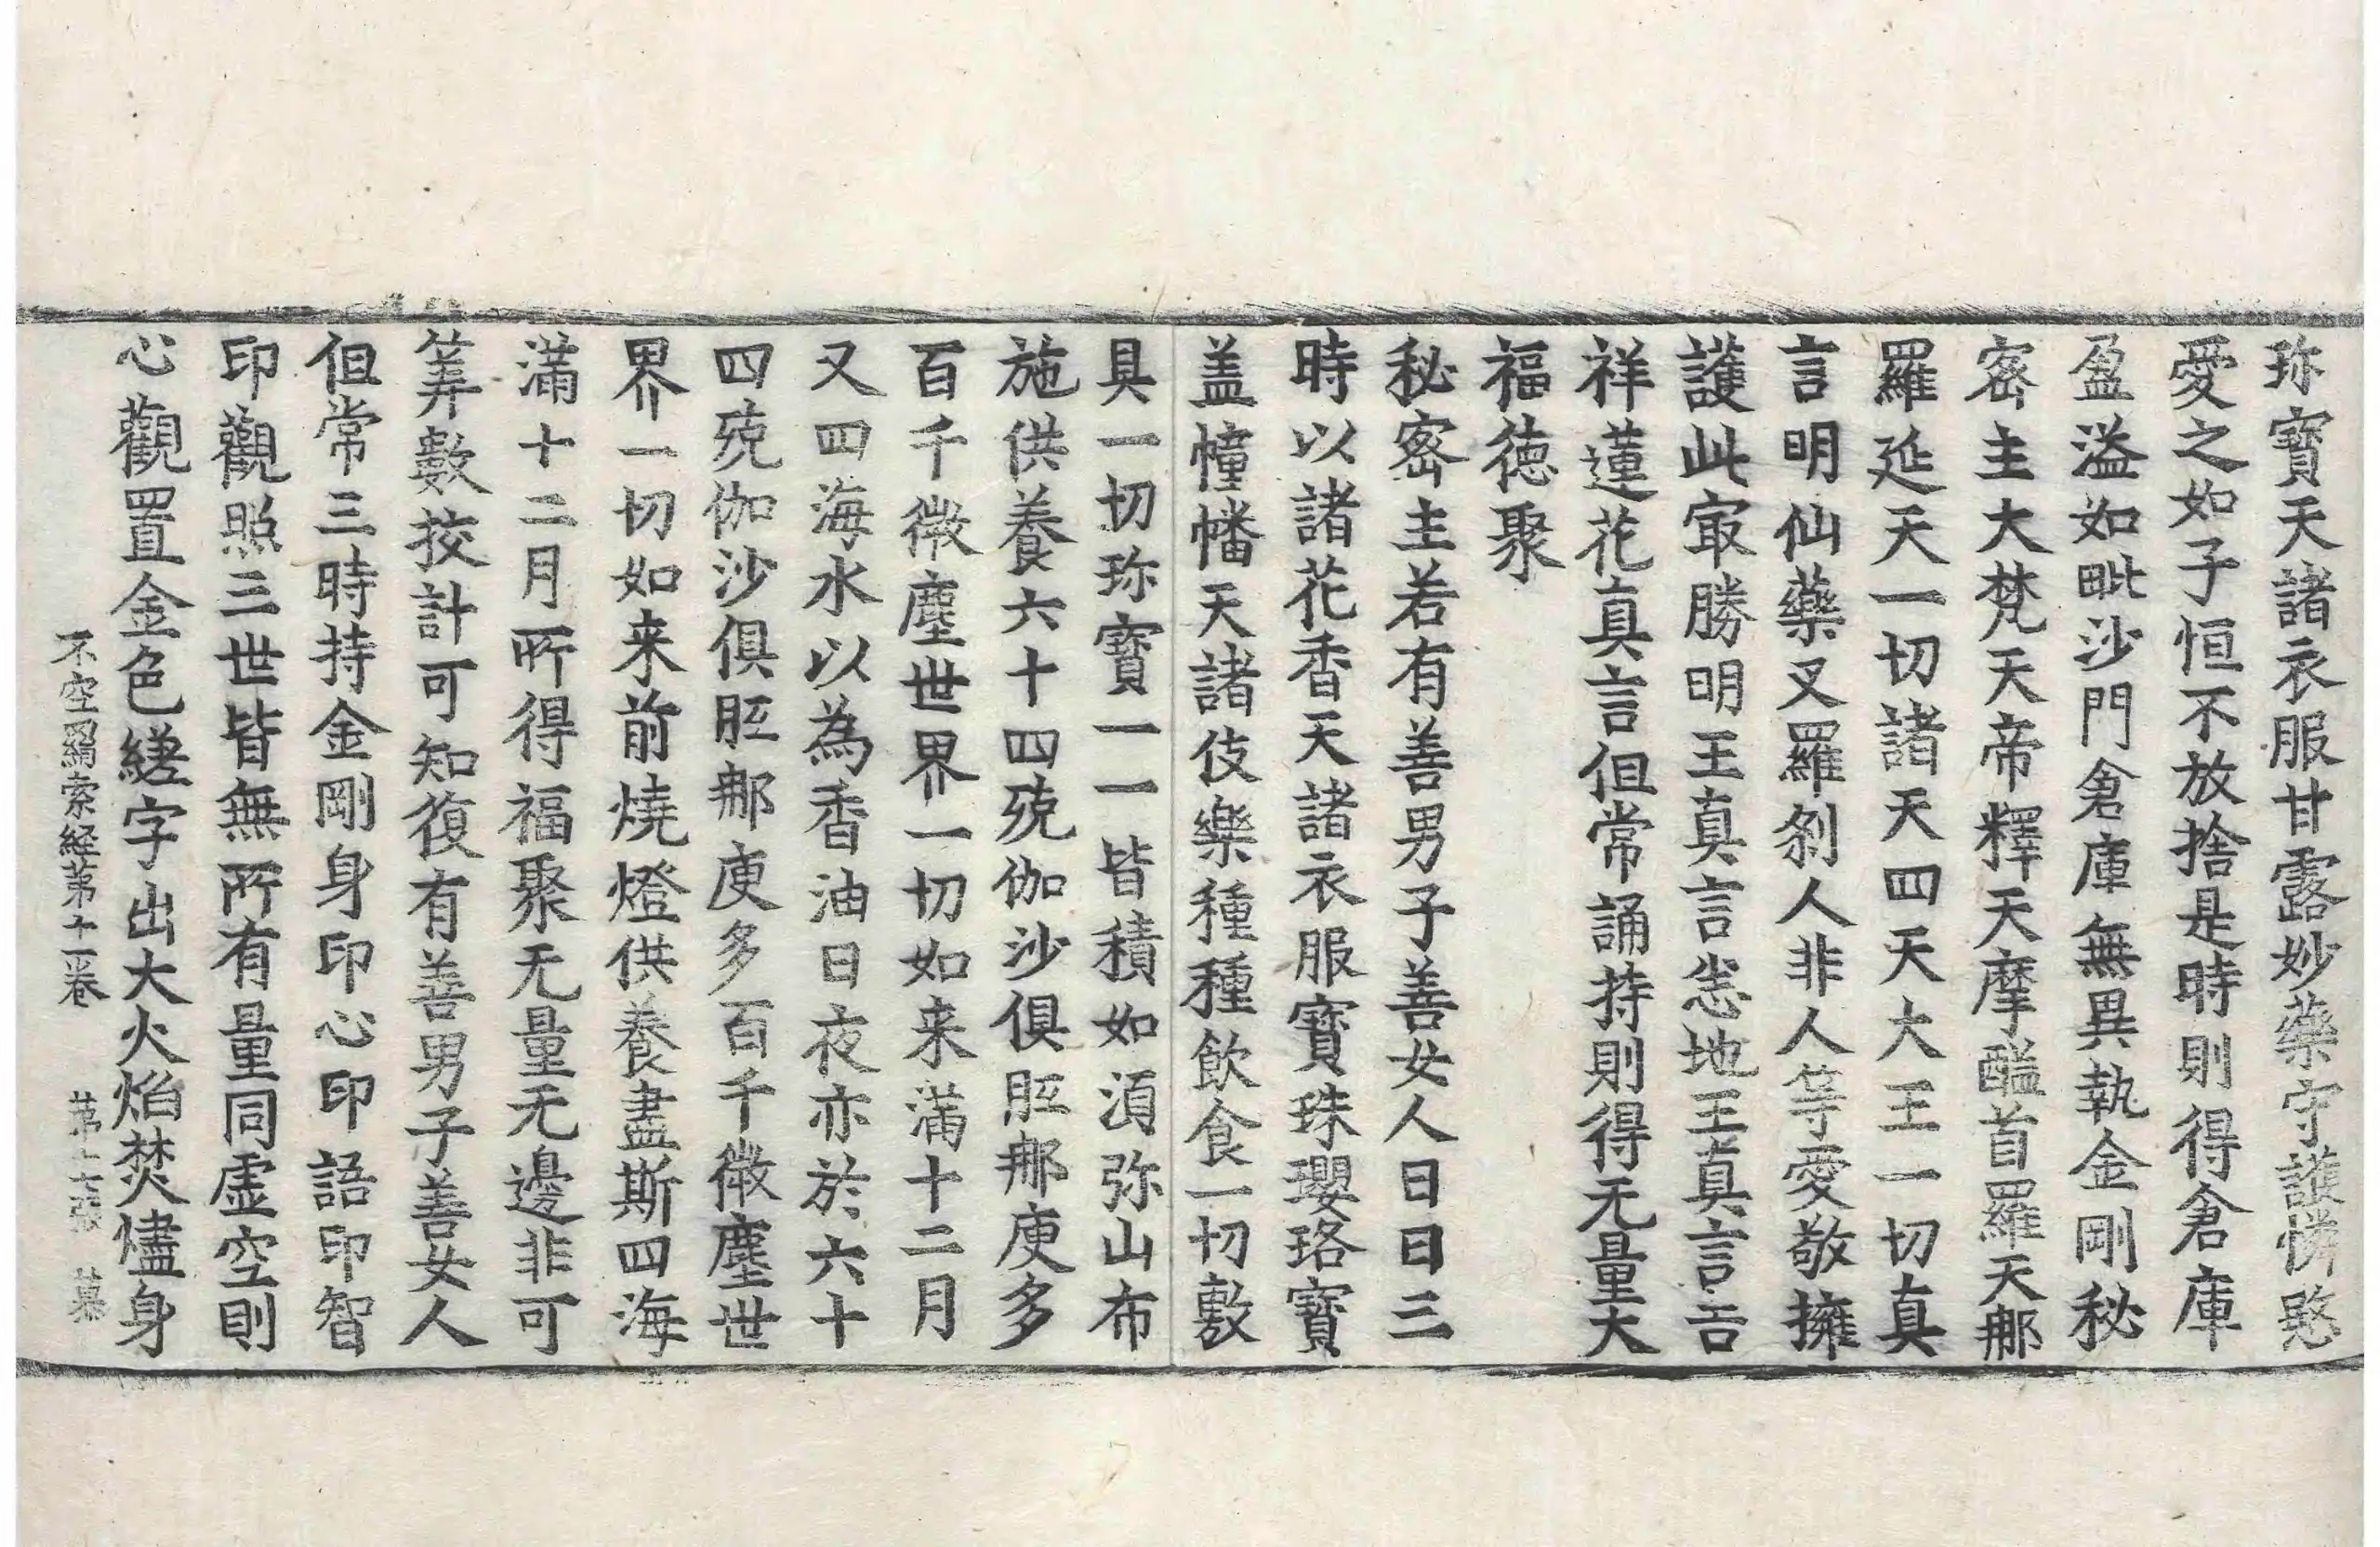 珎寶天諸衣服甘露妙藥守護憐愍
愛之如子恒不放捨是時則得倉庫
盈溢如毗沙門倉庫無異執金剛秘
密主大梵天帝釋天摩醯首羅天那
羅延天一切諸天四天大王一切真
言明仙藥叉羅剎人非人等愛敬擁
護此㝡勝明王真言悉地王真言吉
祥蓮花真言但常誦持則得无量大
福德聚
秘密主若有善男子善女人日日三
時以諸花香天諸衣服寶珠瓔珞寶
盖幢幡天諸伎樂種種飲食一切敷
具一切珎寶一一皆積如湏弥山布
施供養六十四殑伽沙俱胝那庾多
百千微塵世界一切如来滿十二月
又四海水以為香油日夜亦於六十
四殑伽沙俱胝那庾多百千微塵世
界一切如来前燒燈供養盡斯四海
滿十二月所得福聚无量无邊非可
筭數挍計可知復有善男子善女人
但常三時持金剛身印心印語印智
印觀照三世皆無所有量同虛空則
心觀置金色縒字出大火焰焚燼身
不空羂索経苐十一卷 苐十七張